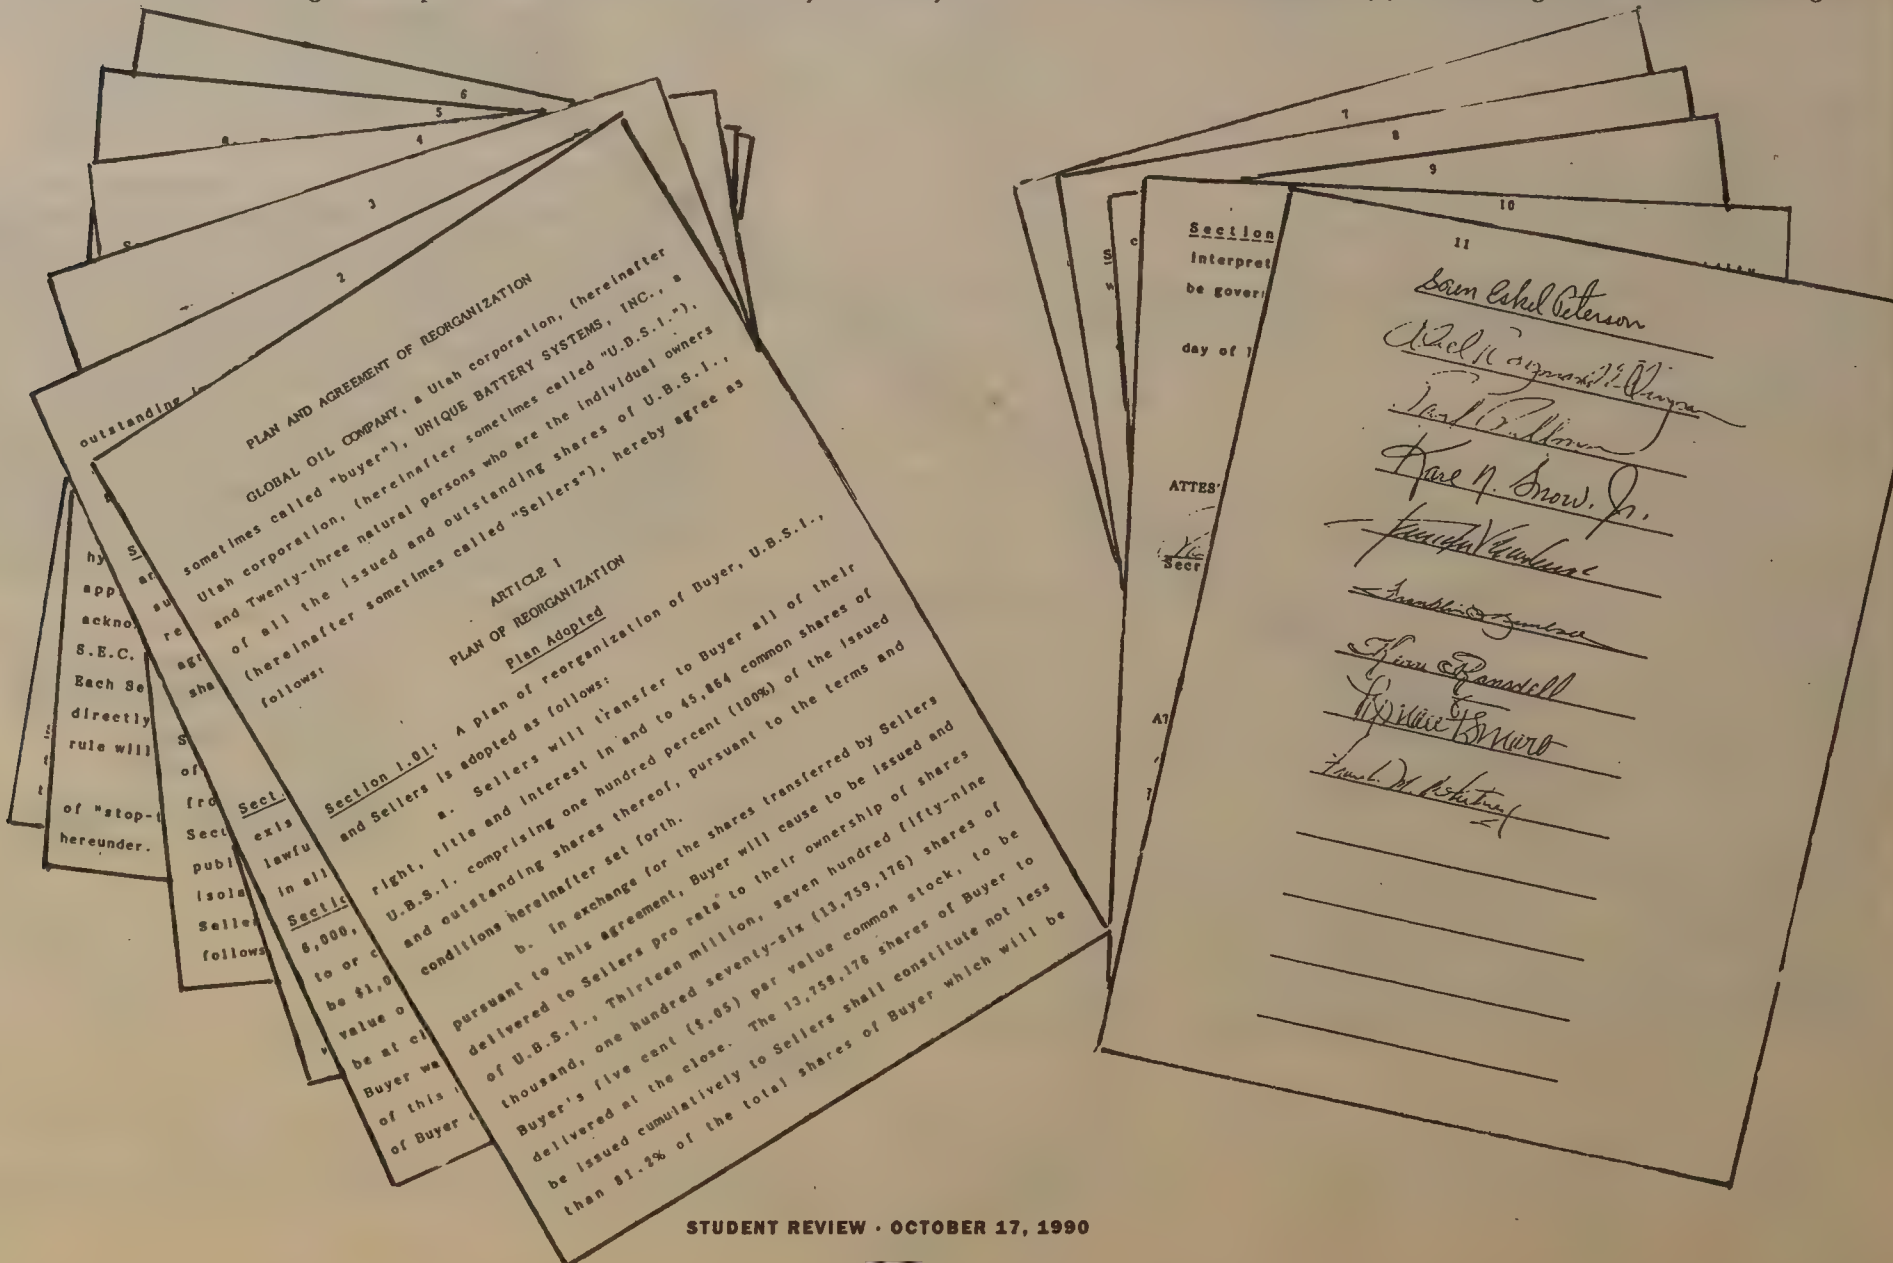 6
5
4
3
2
outstanding
PLAN AND AGREEMENT OF REORGANIZATION
GLOBAL OIL COMPANY, a Utah corporation, (hereinafter
sometimes called "buyer"), UNIQUE BATTERY SYSTEMS, INC., a
Utah corporation, (hereinafter sometimes called "U.B.S.I."),
and Twenty-three natural persons who are the individual owners
of all the issued and outstanding shares of U.B.S.I.,
(hereinafter sometimes called "Sellers"), hereby agree as
follows:
ARTICLE I
PLAN OF REORGANIZATION
Plan Adopted
Section 1.01: A plan of reorganization of Buyer, U.B.S.I.,
and Sellers is adopted as follows:
a. Sellers will transfer to Buyer all of their
right, title and interest in and to 45,864 common shares of
U.B.S.I. comprising one hundred percent (100%) of the issued
and outstanding shares thereof, pursuant to the terms and
conditions hereinafter set forth.
b. In exchange for the shares transferred by Sellers
pursuant to this agreement, Buyer will cause to be issued and
delivered to Sellers pro rata to their ownership of shares
of U.B.S.I., Thirteen million, seven hundred fifty-nine
thousand, one hundred seventy-six (13,759,176) shares of
Buyer's five cent ($.05) par value common stock, to be
delivered at the close. The 13,759,176 shares of Buyer to
be issued cumulatively to Sellers shall constitute not less
than 81.2% of the total shares of Buyer which will be
hy
app
ackno
S.E.C.
Each Se
directly
rule will
of "stop-t
hereunder.
S
ar
su
re
agr
sha
S
of
fro
Secu
publ
isola
Selle
follows
Sect.
exis
lawfu
in all
Sectic
6,000,
to or c
be $1,0
value o
be at cl
Buyer wa
of this
of Buyer
7
8
9
10
11
Section
interpret
be gover
day of
ATTES
Secr
AT
Soren Eskel Peterson
Kare N. Snow, Jr.
Ransdell
STUDENT REVIEW · OCTOBER 17, 1990